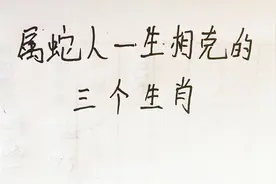 属蛇人一生相克的
三个生肖